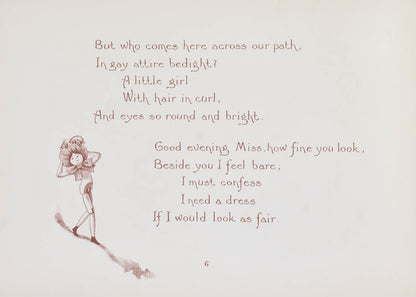 But who comes here across our path,
In gay attire bedight?
A little girl
With hair in curl,
And eyes so round and bright.
Good evening Miss, how fine you look,
Beside you I feel bare;
I must confess
I need a dress
If I would look as fair.
6